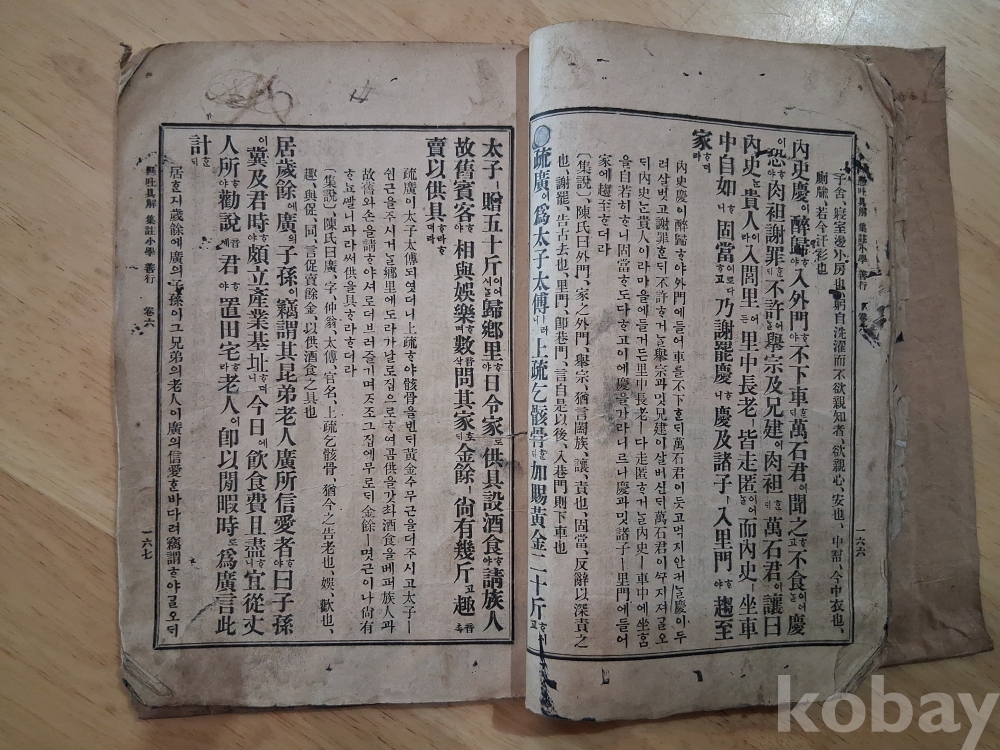 懸吐具解 集註小學 善行 卷六 一六六
字舍、寢室邊小房也、躬自洗濯而不欲親知者、欲親心、安也、中帬、今中衣也、
廁牏、若今汗衫也
內史慶이醉歸ᄒᆞ야入外門ᄒᆞ야不下車ᄒᆞᆫᄃᆡ萬石君이聞之ᄒᆞ고不食이어ᄂᆞᆯ慶
이恐ᄒᆞ야肉袒謝罪ᄒᆞᄃᆡ不許ᄒᆞ야ᄂᆞᆯ擧宗及兄建이肉袒ᄒᆞᆫᄃᆡ萬石君이讓曰
內史ᄂᆞᆫ貴人이라入閭里ᄒᆞ든里中長老ㅣ皆走匿이어ᄂᆞᆯ而內史ㅣ坐車
中自如ᄒᆞ니固當이로다ᄒᆞ고乃謝罷慶ᄒᆞ니慶及諸子ㅣ入里門ᄒᆞ야趨至
家ᄒᆞ더라
內史慶이醉歸ᄒᆞ야外門에들어車를不下ᄒᆞᆫᄃᆡ萬石君이듯고먹지안커ᄂᆞᆯ慶이두
려살벗고謝罪ᄒᆞᄃᆡ不許ᄒᆞ거ᄂᆞᆯ擧宗과밋兄建이살버슨ᄃᆡ萬石君이ᄭᅮ지저ᄀᆞᆯ오
ᄃᆡ內史ᄂᆞᆫ貴人이라마을에들거든里中長老ㅣ다走匿ᄒᆞ거ᄂᆞᆯ內史ㅣ車中에坐홈
을自若히ᄒᆞ니固當ᄒᆞ도다ᄒᆞ고이에慶을가라니르나慶과밋諸子ㅣ里門에들어
家에趨至ᄒᆞ더라
〔集說〕陳氏曰外門、家之外門、擧宗、猶言闔族、讓、責也、固當、反辭以深責之
也、謝罷、告去也、里門、卽巷門、言自是以後、入巷門則下車也
疏廣이爲太子太傅ㅣ러니上疏乞骸骨ᄒᆞᆫᄃᆡ加賜黃金二十斤ᄒᆞ시고
太子ㅣ贈五十斤이어시ᄂᆞᆯ歸鄕里ᄒᆞ야日令家로供具設酒食ᄒᆞ야請族人
故舊賓客ᄒᆞ야相與娛樂ᄒᆞ며數音삭問其家호ᄃᆡ金餘ㅣ尙有幾斤고趣音촉
賣以供具ᄒᆞ라ᄒᆞ더라
疏廣이太子太傅되엿더니上疏ᄒᆞ야骸骨을빈ᄃᆡ黃金수무근을더주시고太子ㅣ
쉰근을주시거ᄂᆞᆯ鄕里에도라가날로집으로ᄒᆞ여곰供을갓촤酒食을베퍼族人과
故舊와손을請ᄒᆞ야셔로더브러즐기며ᄌᆞ조그집에무로ᄃᆡ金餘ㅣ몃근이나尙有
ᄒᆞ뇨ᄲᆞᆯ니파라써供을具ᄒᆞ라ᄒᆞ더라
〔集說〕陳氏曰廣、字、仲翁、太傅、官名、上疏乞骸骨、猶今之告老也、娛、歡也、
趣、與促、同、言促賣餘金、以供酒食之具也
居歲餘에廣의子孫이竊謂其昆弟老人廣所信愛者ᄒᆞ야曰子孫
이冀及君時ᄒᆞ야頗立產業基址ᄒᆞ더니今日에飮食費且盡ᄒᆞ니宜從丈
人所ᄒᆞ야勸說音셰君ᄒᆞ야置田宅ᄒᆞ라老人이卽以閒暇時로爲廣言此
計ᄒᆞᆫᄃᆡ
居ᄒᆞᆫ지歲餘에廣의子孫이그兄弟의老人이廣의信愛ᄒᆞᆫ바다려竊謂ᄒᆞ야ᄀᆞᆯ오ᄃᆡ
懸吐具解 集註小學 善行 卷六 一六七
kobay